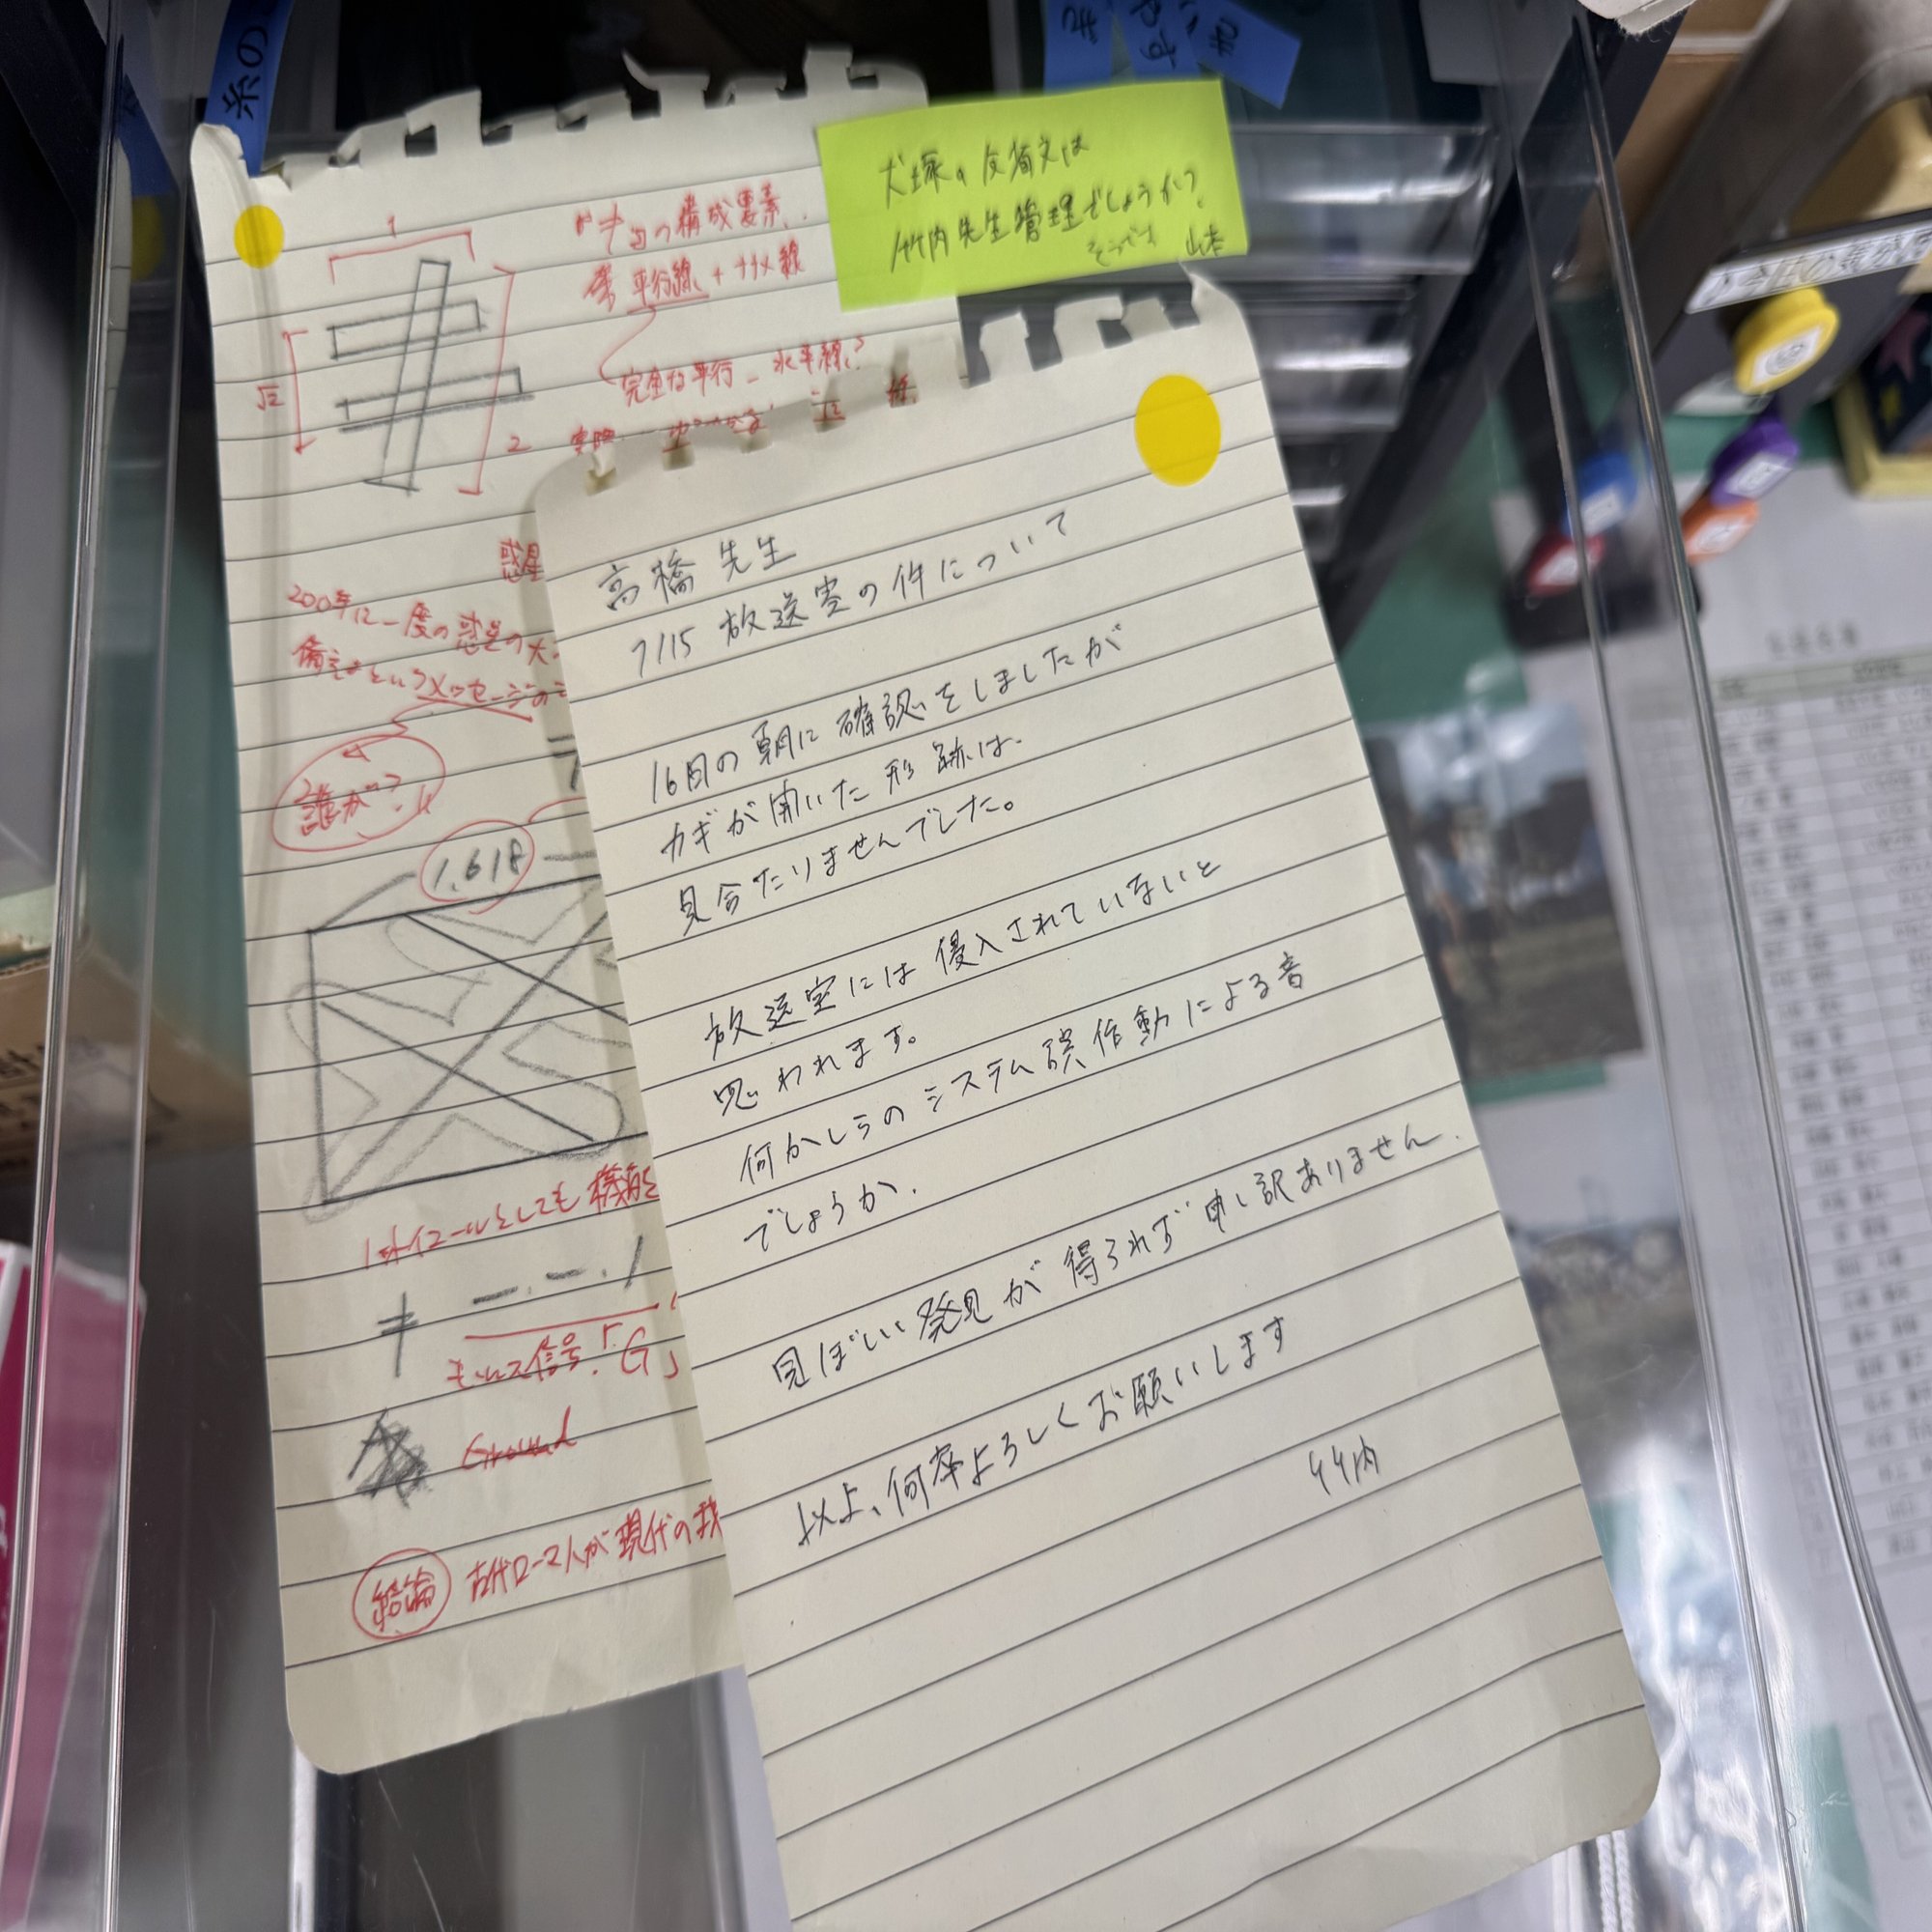 糸の
犬塚の反省文は
竹内先生管理でしょうか?
そうです 山本
1
√2
2
の構成要素
平行線 + ナナメ線
完全な平行 = 水平線?
惑星
200年に一度の惑星の大
備えよというメッセージの
誰が?
1.618
イコールとしても機能
モールス信号「G」
Ground
結論 古代ローマ人が現代の我
高橋先生
7/15 放送室の件について
16日の朝に確認をしましたが
カギが開いた形跡は
見合たりませんでした。
放送室には侵入されていないと
思われます。
何かしらのシステム誤作動による音
でしょうか.
見ぼしい発見が得られず申し訳ありません.
以上、何卒よろしくお願いします
竹内